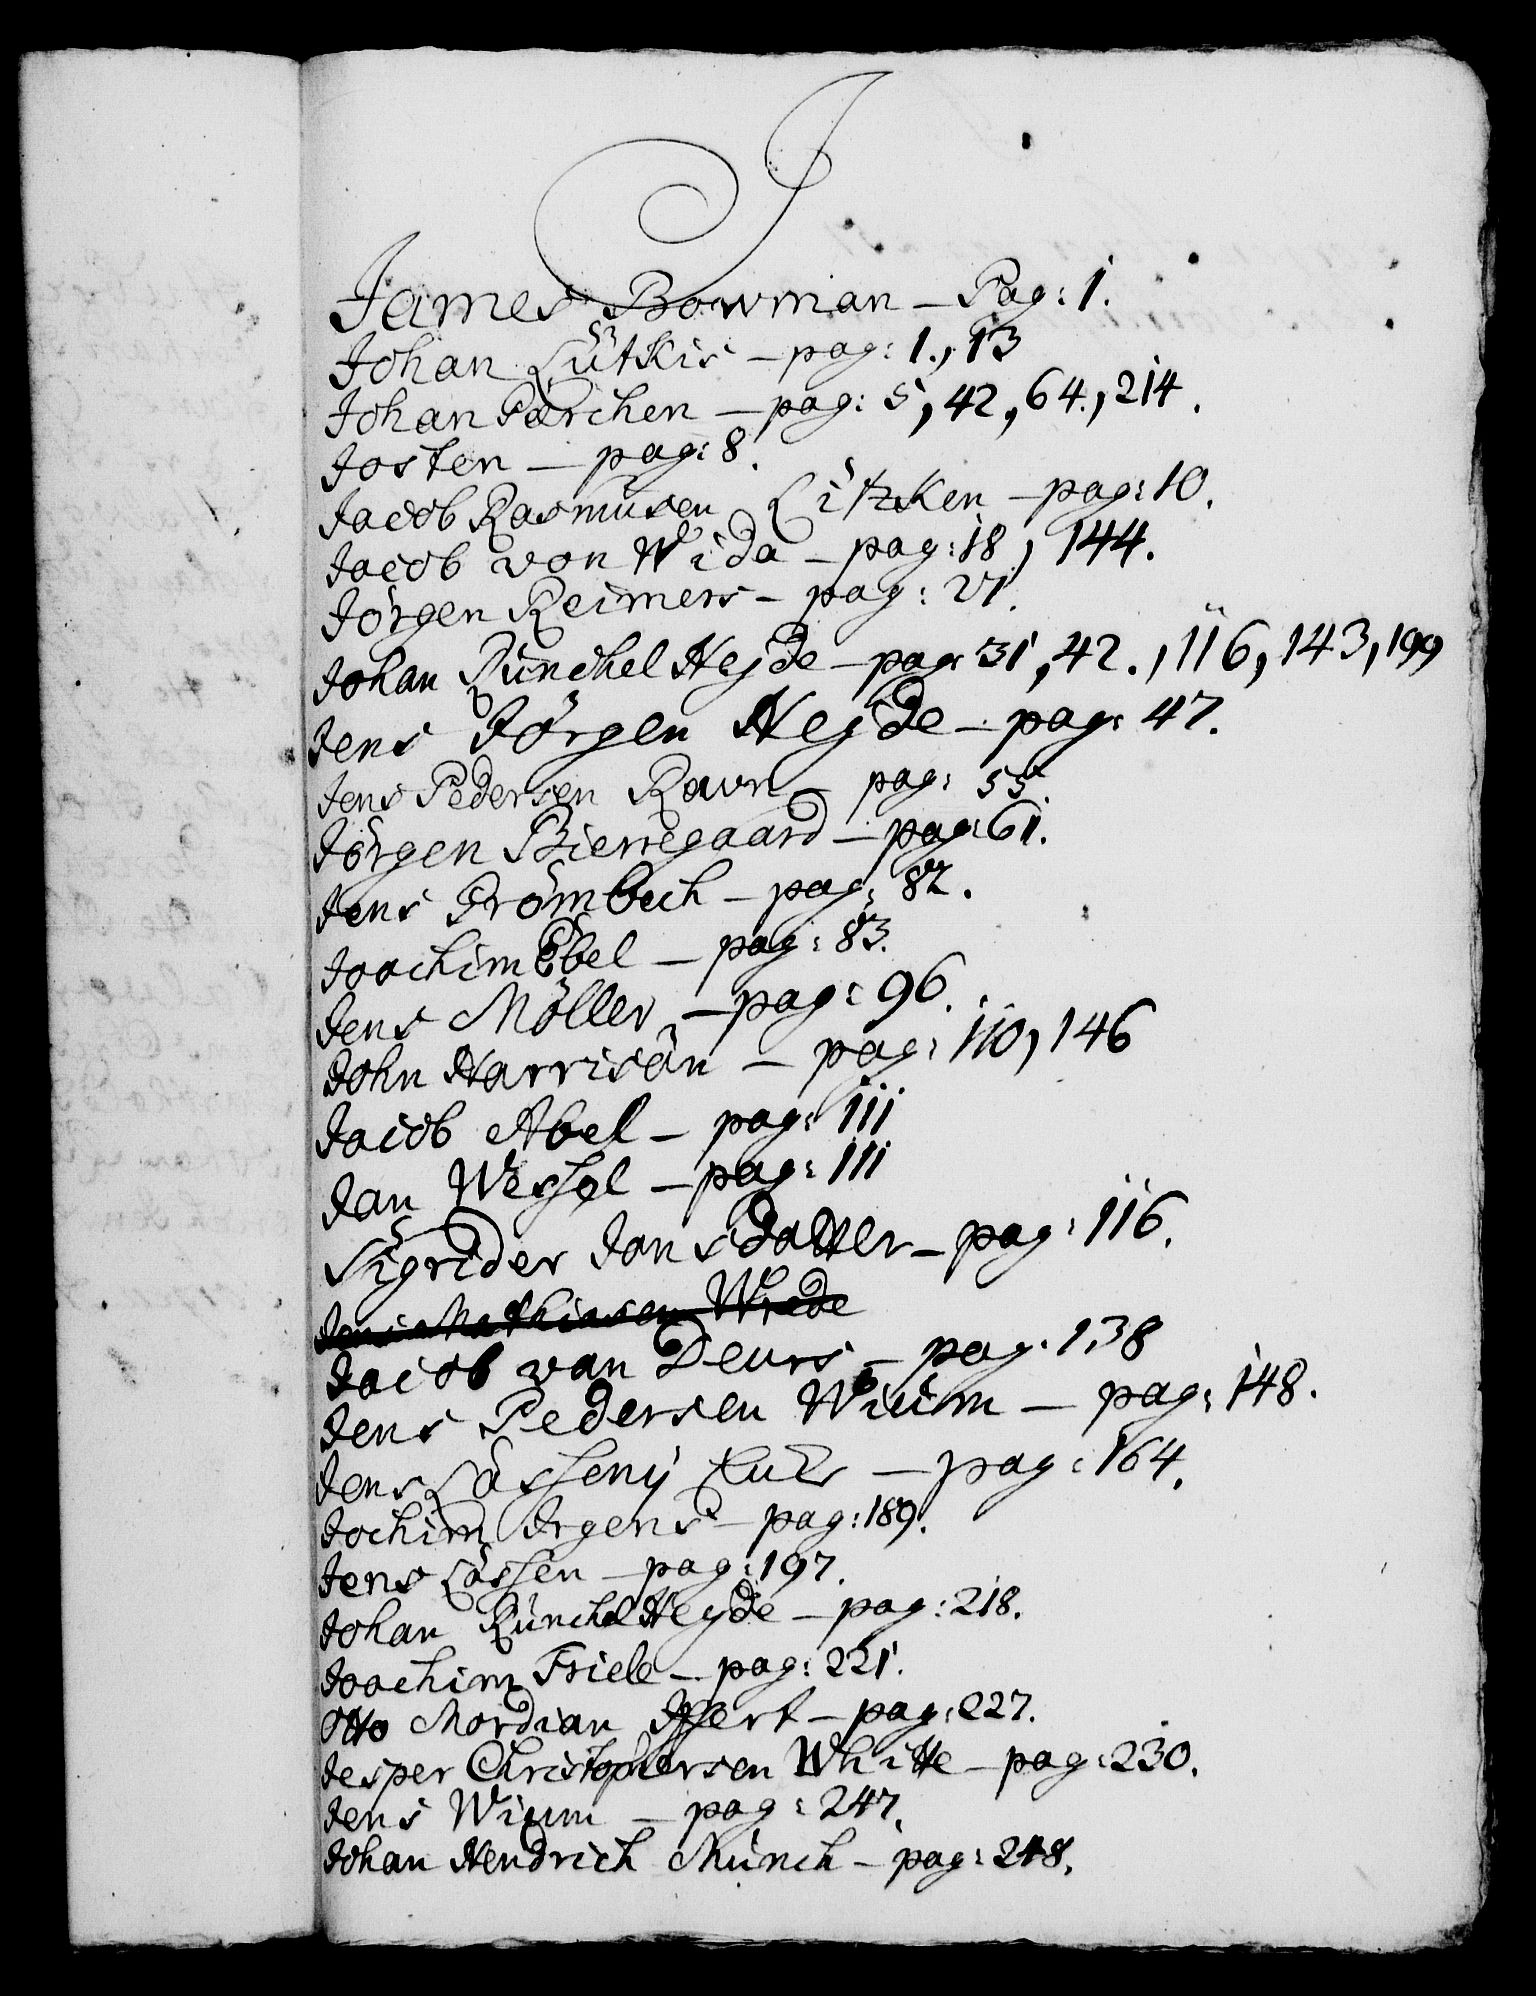 J
James Bowman – Pag: 1.
Johan Lütkis – pag: 1., 13
Johan Parchen – pag: 5, 42, 64., 214.
Josten – pag: 8.
Jacob Rasmusen Litzken – pag: 10.
Jacob von Wida – pag: 18, 144.
Jörgen Reimers – pag: 21.
Johan Künchel Heÿde – pag: 31, 42., 116, 143, 199
Jens Jörgen Heÿde – pag: 47.
Jens Pedersen Ravn – pag: 55.
Jörgen Bierregaard – pag: 61.
Jens Frömbech – pag: 82.
Joachim Ebel – pag: 83.
Jens Möller – pag: 96.
John Harrison – pag: 110, 146
Jacob Abel – pag: 111
Jan Wessel – pag: 111
Sigrider Jansdatter – pag: 116.
Jens Mathiasen Wrede
Jacob van Deurs – pag: 138
Jens Pedersen Wium – pag: 148.
Jens Lasseny – pag: 164.
Jochim Irgens – pag: 189.
Jens Lassen – pag: 197.
Johan Künchel Heyde – pag: 218.
Joachim Friele – pag: 221.
Otto Mordian – pag: 227.
Jesper Christophersen Whitte – pag: 230.
Jens Wium – pag: 247.
Johan Hendrich Münch – pag: 248.